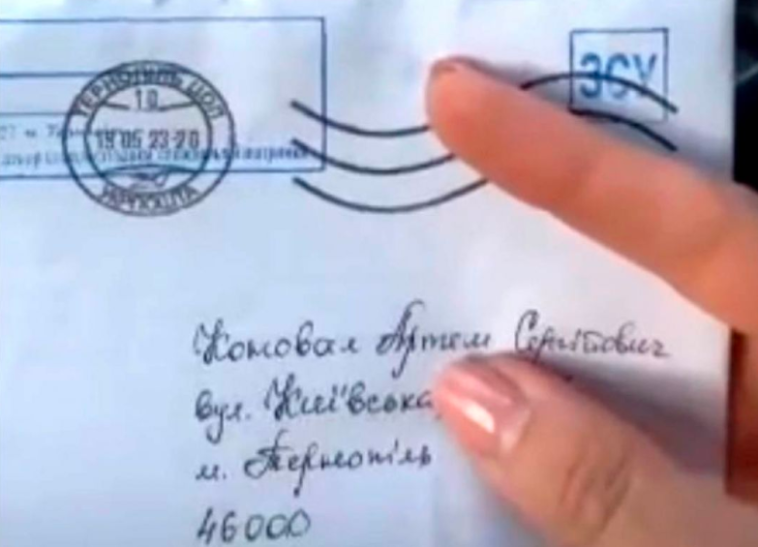 ТЕРНОПІЛЬ ЦОП
10
19 05 23-20
УКРПОШТА
ЗСУ
Коновал Артем Сергійович
вул. Київська,
м. Тернопіль
46000